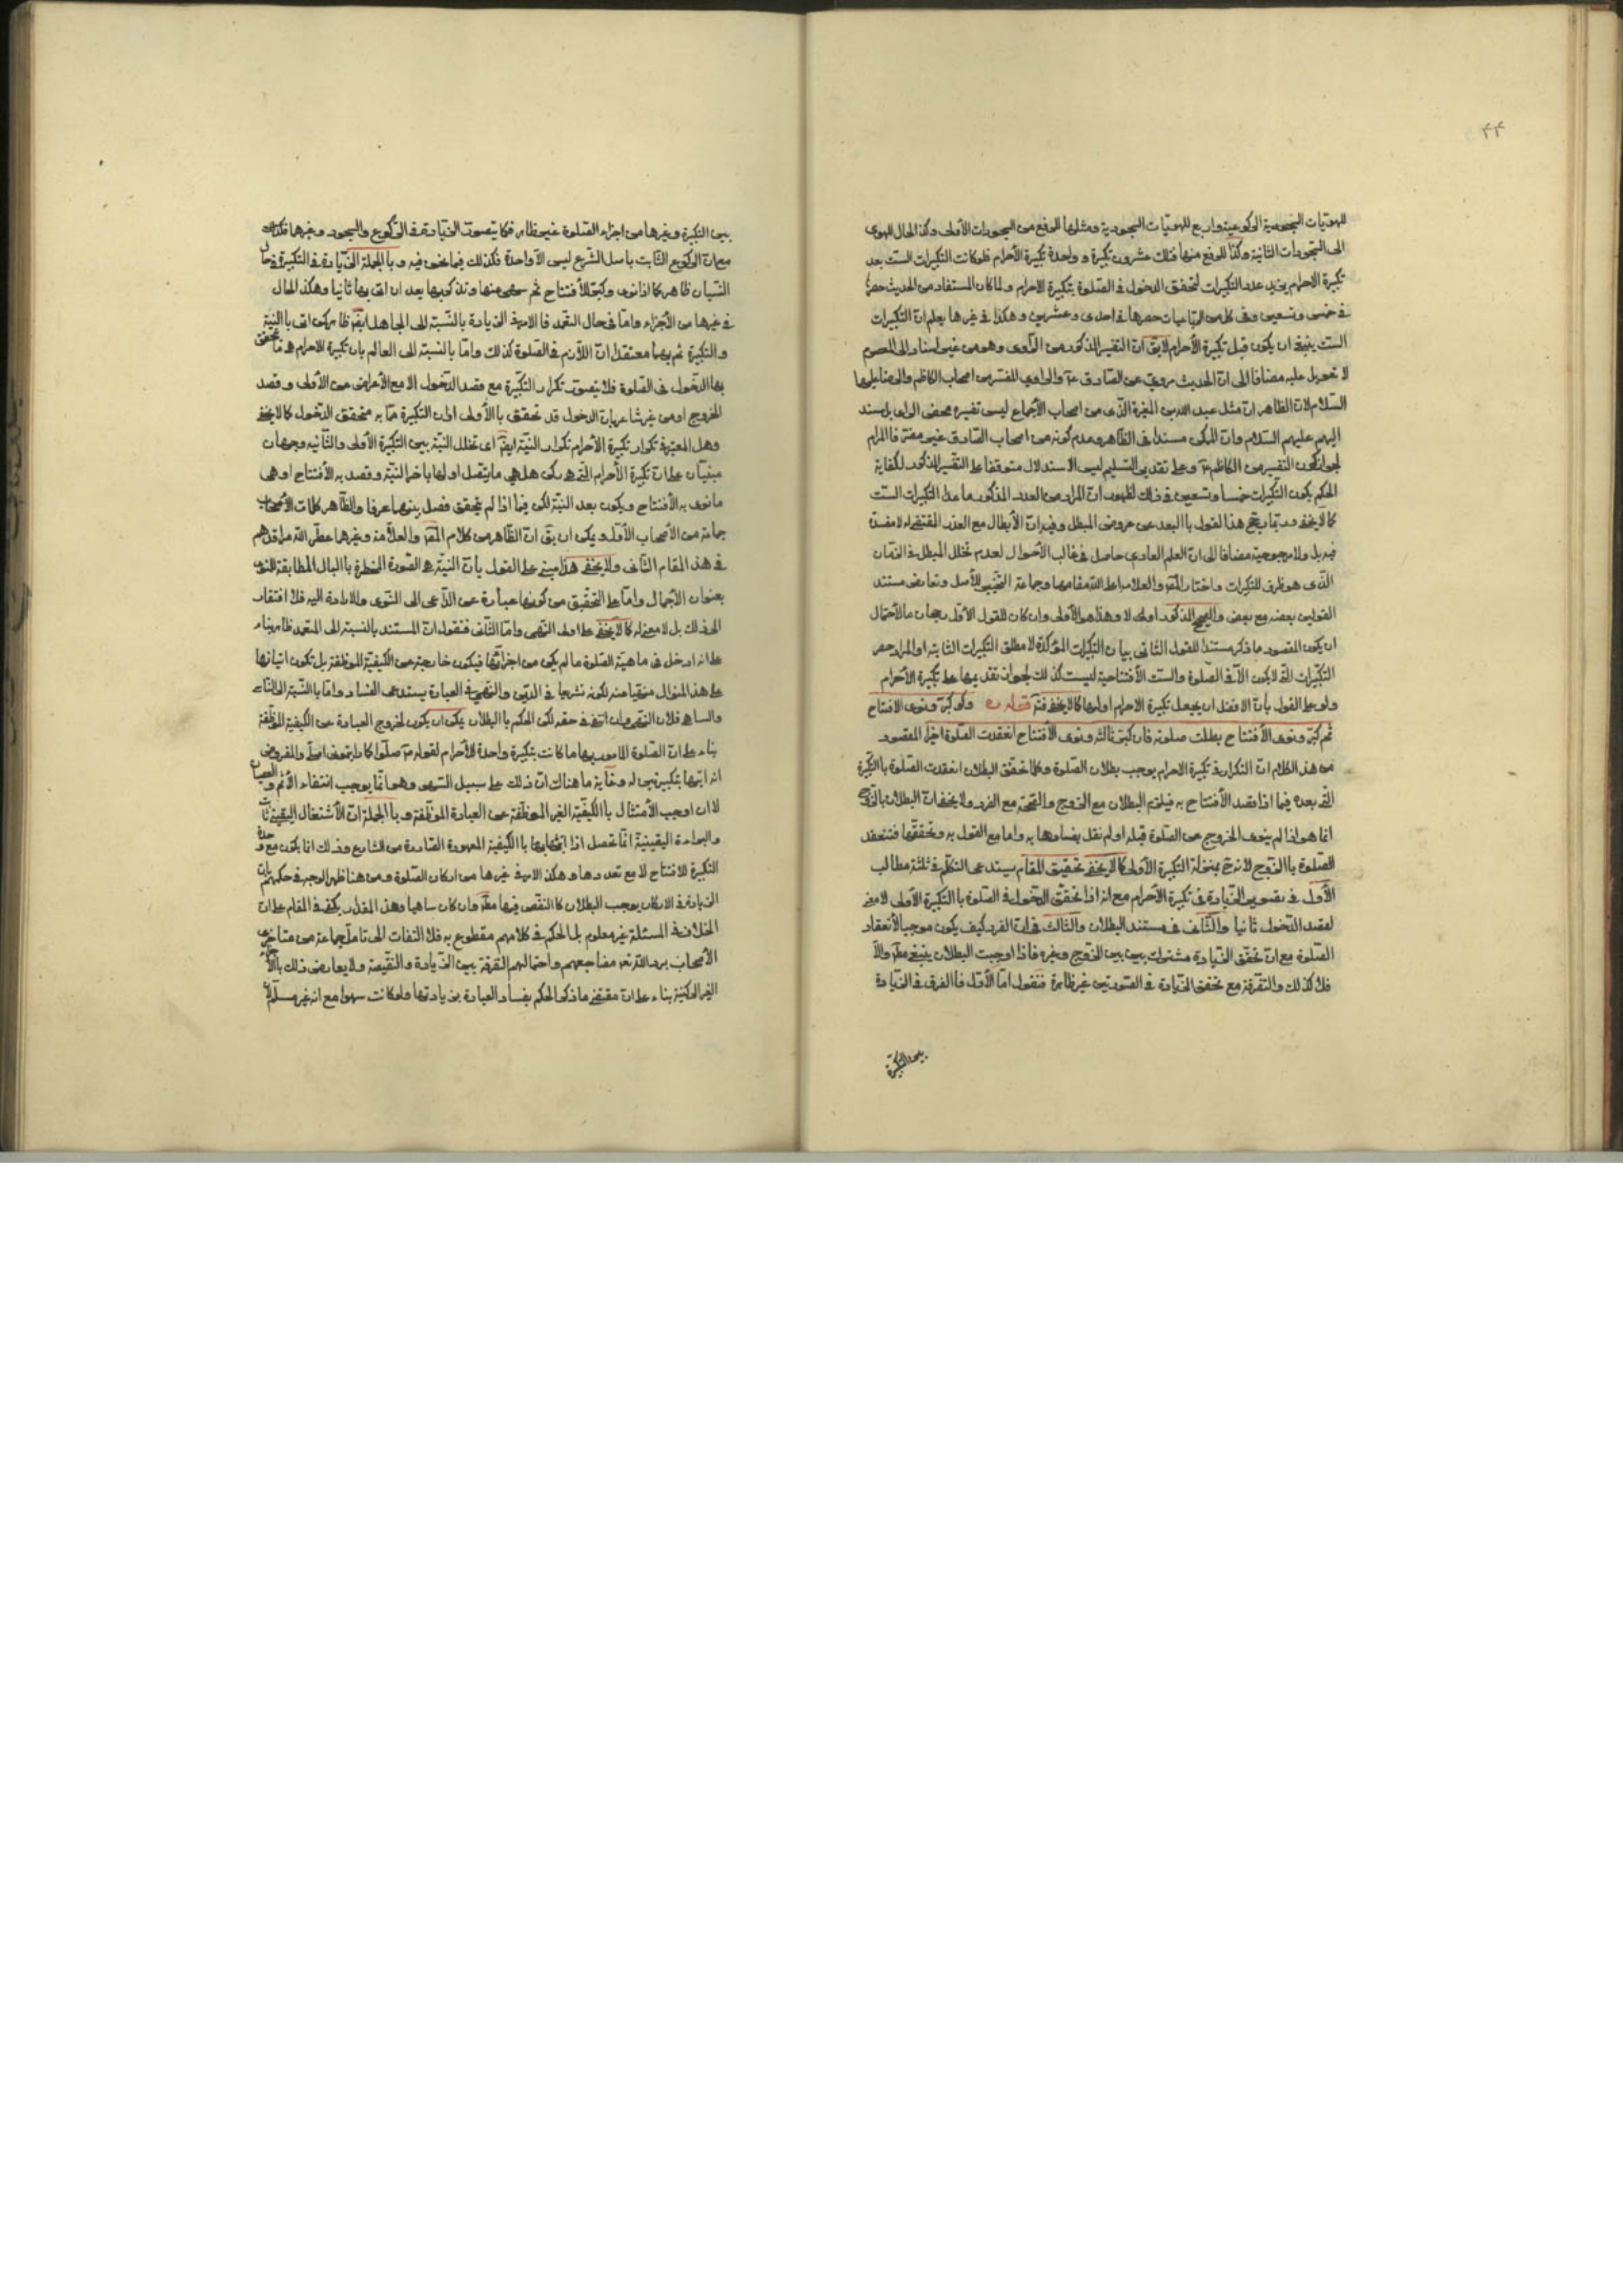 ۴۴
للهويّات السجودية الركوعية واربع للهويّات السجودية ومثلها للرفع من السجودات الأولى وكذا الحال للهوى
الى السجودات الثانية وكذا للرفع منها فتلك عشرون تكبيرة وواحدة تكبيرة الأحرام فلو كانت التكبيرات الست بعد
تكبيرة الاحرام يزيد عدد التكبيرات لتحقق الدخول في الصلوة بتكبيرة الاحرام ولما كان المستفاد من الحديث حصرها
في خمس وتسعين وفى كل من الرباعيات حصرها في احدى وعشرين وهكذا في غيرها يعلم ان التكبيرات
الست ينبغي ان يكون قبل تكبيرة الأحرام لا يقال ان التفسير المذكور من الراوى وهو من غير اسناد الى المعصوم
لا تعويل عليه مضافا الى ان الحديث مروي عن الصادق ع والراوي المفسر من اصحاب الكاظم والرضا عليهما
السلام لان الظاهر ان مثل عبد الله بن المغيرة الذى من اصحاب الأجماع ليس تفسيره محض الراى بل يسند
اليهم عليهم السلام وان لم يكن مسندا في الظاهر وعدم كونه من اصحاب الصادق غير مضر فالمرام
لجواز كون التفسير من الكاظم ع وعلى تقدير التسليم ليس الاستدلال متوقفا على التفسير المذكور لكفاية
الحكم بكون التكبيرات خمسا وتسعين في ذلك لظهور ان المراد من العدد المذكور ما عدا التكبيرات الست
كما لا يخفى وربما يرجح هذا القول بالبعد عن عروض المبطل وفيه ان الأبطال مع العذر المقتضى له لا مفسدة
فيه بل ولا مرجوحية مضافا الى ان العلم العادي حاصل في غالب الأحوال لعدم تخلل المبطل في الزمان
الذى هو ظرف للتكبيرات واختار المص والعلامة اعلى الله مقامهما وجماعة التخيير للأصل وتعارض مستند
القولين بعضه مع بعض والترجيح المذكور اولى لا وهذا هو الأولى وان كان للقول الأول رجحان ما لاحتمال
ان يكون المقصود ما ذكر مستندا للقول الثانى بيان التكبيرات المؤكدة لا مطلق التكبيرات الثابتة او المراد حصر
التكبيرات التى لا يكون الا في الصلوة والست الأفتتاحية ليست كذلك لجواز تقديمها على تكبيرة الأحرام
ولو على القول بان الافضل ان يجعل تكبيرة الاحرام اولها كما لا يخفى قوله ره ولو كبر ونوى الافتتاح
ثم كبر ونوى الأفتتاح بطلت صلوته فان كبر ثالثه ونوى الأفتتاح انعقدت الصلوة اخيرا المقصود
من هذا الكلام ان التكرار في تكبيرة الاحرام يوجب بطلان الصلوة وكلما تحقق البطلان انعقدت الصلوة بالتكبيرة
التى بعده فيما اذا قصد الأفتتاح به فيلزم البطلان مع الزوج والصحة مع الفرد ولا يخفى ان البطلان بالزوج
انما هو اذا لم ينو الخروج عن الصلوة قبله او لم نقل بفسادها به واما مع القول به وتحققها فتنعقد
الصلوة بالزوج لانه ح بمنزلة التكبيرة الأولى كما لا يخفى تحقيق المقام يستدعى التكلم في ثلثة مطالب
الأول في تصوير الزيادة في تكبيرة الأحرام مع انه اذا تحقق الدخول في الصلوة بالتكبيرة الأولى لا معنى
لقصد الدخول ثانيا والثانى في مستند البطلان والثالث في ان الفرد كيف يكون موجبا لأنعقاد
الصلوة مع ان تحقق الزيادة مشترك بين الزوج وغيره فاذا اوجبت البطلان ينبغي مطلقا والا
فلا كذلك والتفرقة مع تحقق الزيادة في الصورتين غير ظاهرة فنقول اما الأول فالفرق في الزيادة
بين التكبيرة
بين التكبيرة وغيرها من اجزاء الصلوة غير ظاهر فكما يتصور الزيادة في الركوع والسجود وغيرها فكذلك
مع ان الركوع الثابت باصل الشرع ليس الا واحدة فكذلك فيما نحن فيه وبالجملة الزيادة في التكبيرة في حال
النسيان ظاهر كما اذا نوى وكبر للأفتتاح ثم سهى منها وتذكر بها بعد ان اتى بها ثانيا وهكذا الحال
في غيرها من الأجزاء واما في حال التعمد فالامر في الزيادة بالنسبة الى الجاهل ايضا ظاهر كمن اتى بالنية
والتكبيرة ثم بهما معتقدا ان اللازم في الصلوة كذلك واما بالنسبة الى العالم بان تكبيرة الاحرام هي ما تحقق
بها الدخول في الصلوة فلا يتصور تكرار التكبيرة مع قصد الدخول الا مع الأعراض عن الأولى وقصد
الخروج او من غير شاعر بان الدخول قد تحقق بالأولى اذن التكبيرة ما به متحقق الدخول كما لا يخفى
وهل المعتبر في تكرار تكبيرة الأحرام تكرار النية ايضا اى تخلل النية بين التكبيرة الأولى والثانية وجهان
مبنيان على ان تكبيرة الأحرام التى هي ركن هل هي ما يتصل اولها باخر النية وقصد به الأفتتاح او هى
ما نوى به الأفتتاح ويكون بعد النية لكن فيما اذا لم يتحقق فصل بينهما عرفا والظاهر كلمات الأصحاب
جماعة من الأصحاب الأول ويمكن ان يق ان الظاهر من كلام المص والعلامة وغيرهما عطر الله مراقدهم
في هذا المقام الثانى ولا يخفى هذا مبنى على القول بان النية هي الصورة المخطرة بالبال المطابقة للنوى
بعنوان الأجمال واما على التحقيق من كونها عبارة عن الداعى الى الشوى والارادة اليه فلا افتقار
الى ذلك بل لا معنى له كما لا يخفى على اولى النهى واما الثانى فنقول ان المستند بالنسبة الى المتعمد ظاهر بناء
على انه ادخل في ماهية الصلوة ما لم يكن من اجزائها فيكون خارجة عن الكيفية الموظفة بل تكون اتيانها
على هذا المنوال منهيا عنه لكونه تشريعا في الدين والنهى في العبادة يستدعى الفساد واما بالنسبة الى الناسى
والساهى فلان النهى وان انتفى في حقه لكن الحكم بالبطلان يمكن ان يكون لخروج العبادة عن الكيفية الموظفة
بناء على ان الصلوة المامور بها ما كانت بتكبيرة واحدة للأحرام لقوله ص صلوا كما رايتمونى اصلى والمفروض
انه اتيها بتكبيرتين له وغاية ما هناك ان ذلك على سبيل السهو وهو انما يوجب انتفاء الأثم والعصيان
لا ان اوجب الأمتثال بالكيفية الغير الموظفة عن العبادة الموظفة وبالجملة ان الأشتغال اليقينى ثابت
والبراءة اليقينية انما تحصل اذا اتى بها بالكيفية المعهودة الصادرة من الشارع وذلك انما يكون مع وحدة
التكبيرة للافتتاح لا مع تعددها وهكذا الامر في غيرها من اركان الصلوة ومن هنا ظهر الوجه في حكمهم بان
الزيادة في الاركان يوجب البطلان كالنقص فيها مطلقا وان كان ساهيا وهذا المقدار يكفى في المقام على ان
الخلاف في المسئلة غير معلوم بل الحكم في كلامهم مقطوع به فلا التفات الى تامل جماعة من متاخرى
الأصحاب برد الله تعالى مضاجعهم واحتمالهم التفرقة بين الزيادة والنقيصة ولا يعارض ذلك بالأجزاء
الغير الركنية بناء على ان مقتضى ما ذكر الحكم بفساد العبادة بزيادتها ولو كانت سهوا مع انه غير مسلم لأن